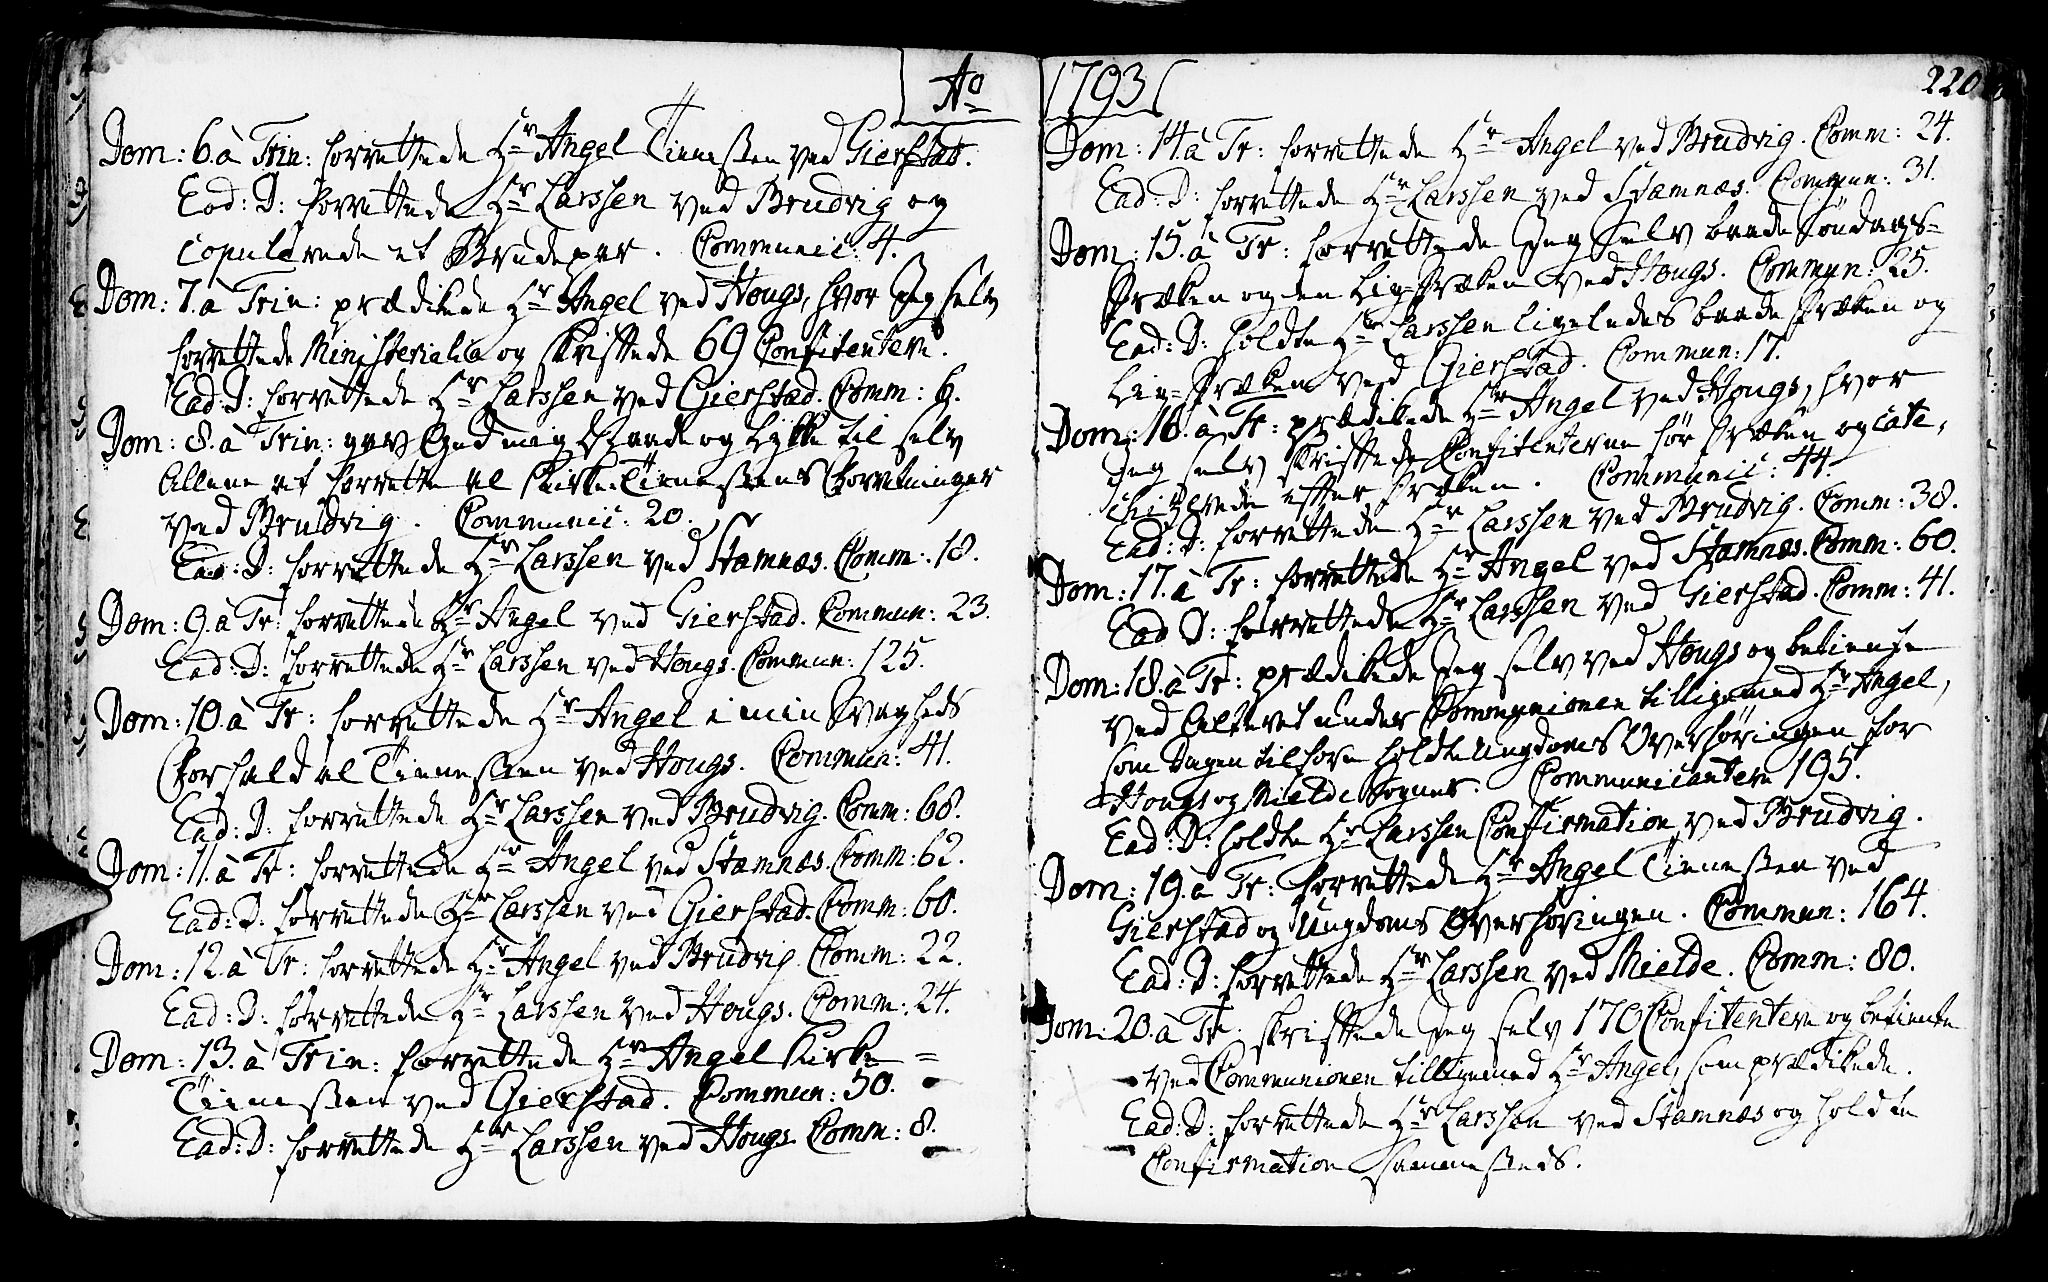 Ao
Dom: 6. à Trin: forrettede Hr Angel Tienesten ved Gierstad.
Ead: D: forrettede Hr Larssen ved Brudvig og
copulerede et Brudepar. Communic: 4.
Dom: 7. à Trin: prædikede Hr Angel ved Hougs, hvor Jeg selv
forrettede Ministerialia og skriftede 69 Confitentere.
Ead: D: forrettede Hr Larssen ved Gierstad. Comm: 6.
Dom: 8. à Trin: gav Gud mig Naade og Lykke til selv
Allene at forrette al Kirke-Tienestens Forretninger
ved Brudvig. Communic: 20.
Ead: D: forrettede Hr Larssen ved Stamnæs. Comm: 18.
Dom: 9. à Tr: forrettede Hr Angel ved Gierstad. Commun: 23.
Ead: D: forrettede Hr Larssen ved Hougs. Commun: 125.
Dom: 10. à Tr: forrettede Hr Angel i min Svagheds
Forfald al Tienesten ved Hougs. Commun: 41.
Ead: D: forrettede Hr Larssen ved Brudvig. Comm: 68.
Dom: 11. à Tr: forrettede Hr Angel ved Stamnæs. Comm: 62.
Ead: D: forrettede Hr Larssen ved Gierstad. Comm: 60.
Dom: 12. à Tr: forrettede Hr Angel ved Brudvig. Comm: 22.
Ead: D: forrettede Hr Larssen ved Hougs. Comm: 24.
Dom: 13. à Trin: forrettede Hr Angel Kirke=
Tienesten ved Gierstad. Commun: 50.
Ead: D: forrettede Hr Larssen ved Hougs Comm: 8.
1793
220
Dom: 14. à Tr: forrettede Hr Angel ved Brudvig. Comm: 24.
Ead: D: forrettede Hr Larssen ved Stamnæs. Commun: 31.
Dom: 15. à Tr: forrettede Jeg selv baade Søndags=
Præken og en Lig-Præken ved Hougs. Commun: 25.
Ead: D: holdte Hr Larssen ligeledes baade Præken og
Lig=Præken ved Gierstad. Commun: 17.
Dom: 16. à Tr: prædikede Hr Angel ved Hougs, hvor
Jeg selv skriftede Confitenterne før Præken og cate,
chizerede efter Præken. Communic: 44.
Ead: D: forrettede Hr Larssen ved Brudvig. Comm: 38.
Dom: 17. à Tr: forrettede Hr Angel ved Stamnæs. Comm: 60.
Ead D: forrettede Hr Larssen ved Gierstad. Comm: 41.
Dom: 18. à Tr: prædikede Jeg selv ved Hougs og betiente
ved Alteret under Communionen tilligemed Hr Angel,
som Dagen tilforn holdte Ungdoms Overhøringen for
Hougs og Mielde Sogner. Communicantere 195.
Ead: D: holdte Hr Larssen Confirmation ved Brudvig.
Dom: 19. à Tr: forrettede Hr Angel Tienesten ved
Gierstad og Ungdoms Overhøringen. Commun: 164.
Ead: D: forrettede Hr Larssen ved Mielde. Comm: 80.
Dom: 20. à Tr: skriftede Jeg selv 170 Confitentere og betiente
ved Communionen tilligemed Hr Angel, som prædikede.
Ead: D: forrettede Hr Larssen ved Stamnæs og holdte
Confirmation sammesteds.